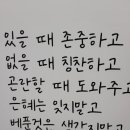 있을 때 존중하고
없을 때 칭찬하고
곤란할 때 도와주고
은혜는 잊지말고
베푼것은 생각지말고